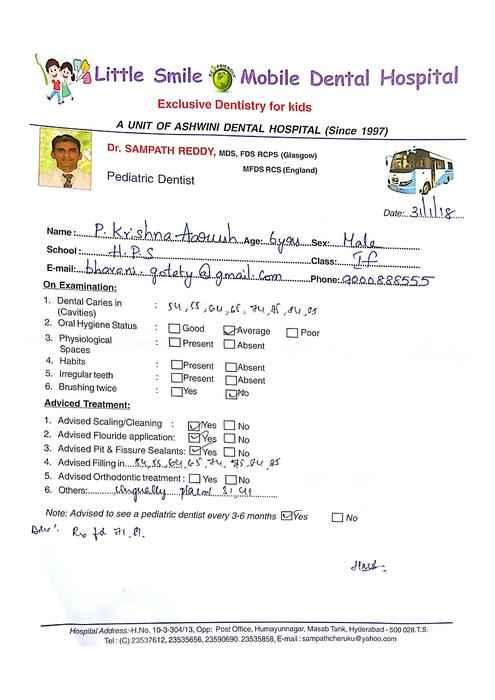 Little Smile Mobile Dental Hospital
Exclusive Dentistry for kids
A UNIT OF ASHWINI DENTAL HOSPITAL (Since 1997)
Dr. SAMPATH REDDY, MDS, FDS RCPS (Glasgow)
MFDS RCS (England)
Pediatric Dentist
Date: 31/1/18
Name: P. Krishna Aarush Age: 6 yrs Sex: Male
School: H.P.S Class: I F
E-mail: bhavani.gotety@gmail.com Phone: 9000888555
On Examination:
1. Dental Caries in : 54, 55, 64, 65, 74, 75, 84, 85
(Cavities)
2. Oral Hygiene Status : Good Average Poor
3. Physiological : Present Absent
Spaces
4. Habits : Present Absent
5. Irregular teeth : Present Absent
6. Brushing twice : Yes No
Adviced Treatment:
1. Advised Scaling/Cleaning : Yes No
2. Advised Flouride application: Yes No
3. Advised Pit & Fissure Sealants: Yes No
4. Advised Filling in 54, 55, 64, 65, 74, 75, 84, 85
5. Advised Orthodontic treatment : Yes No
6. Others: Lingually placed 31, 41
Note: Advised to see a pediatric dentist every 3-6 months Yes No
for 71, 81.
Hospital Address:-H.No. 10-3-304/13, Opp: Post Office, Humayunnagar, Masab Tank, Hyderabad - 500 028.T.S.
Tel : (C) 23537612, 23535656, 23590690. 23535858, E-mail : sampathcheruku@yahoo.com